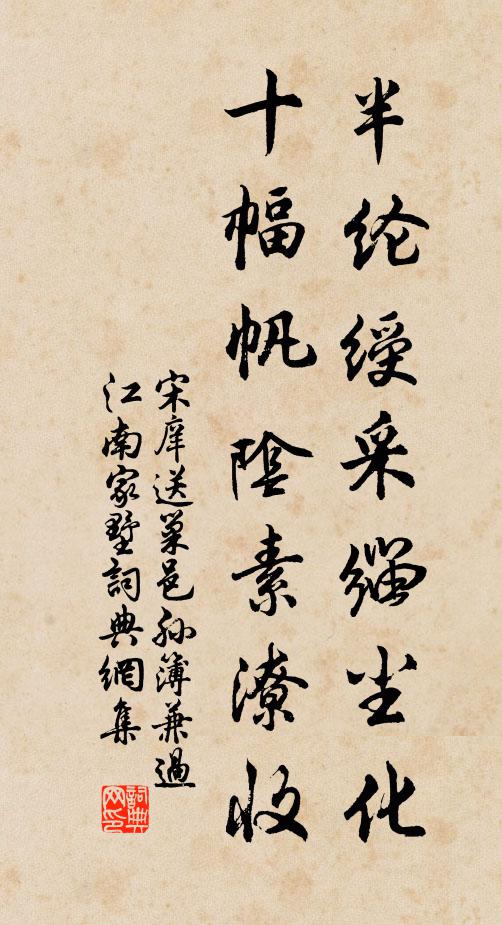 半纶绶采缁尘化
十幅帆阴素潦收
宋庠送巢邑孙簿兼过
江南家墅詞典網集
詞典
网印